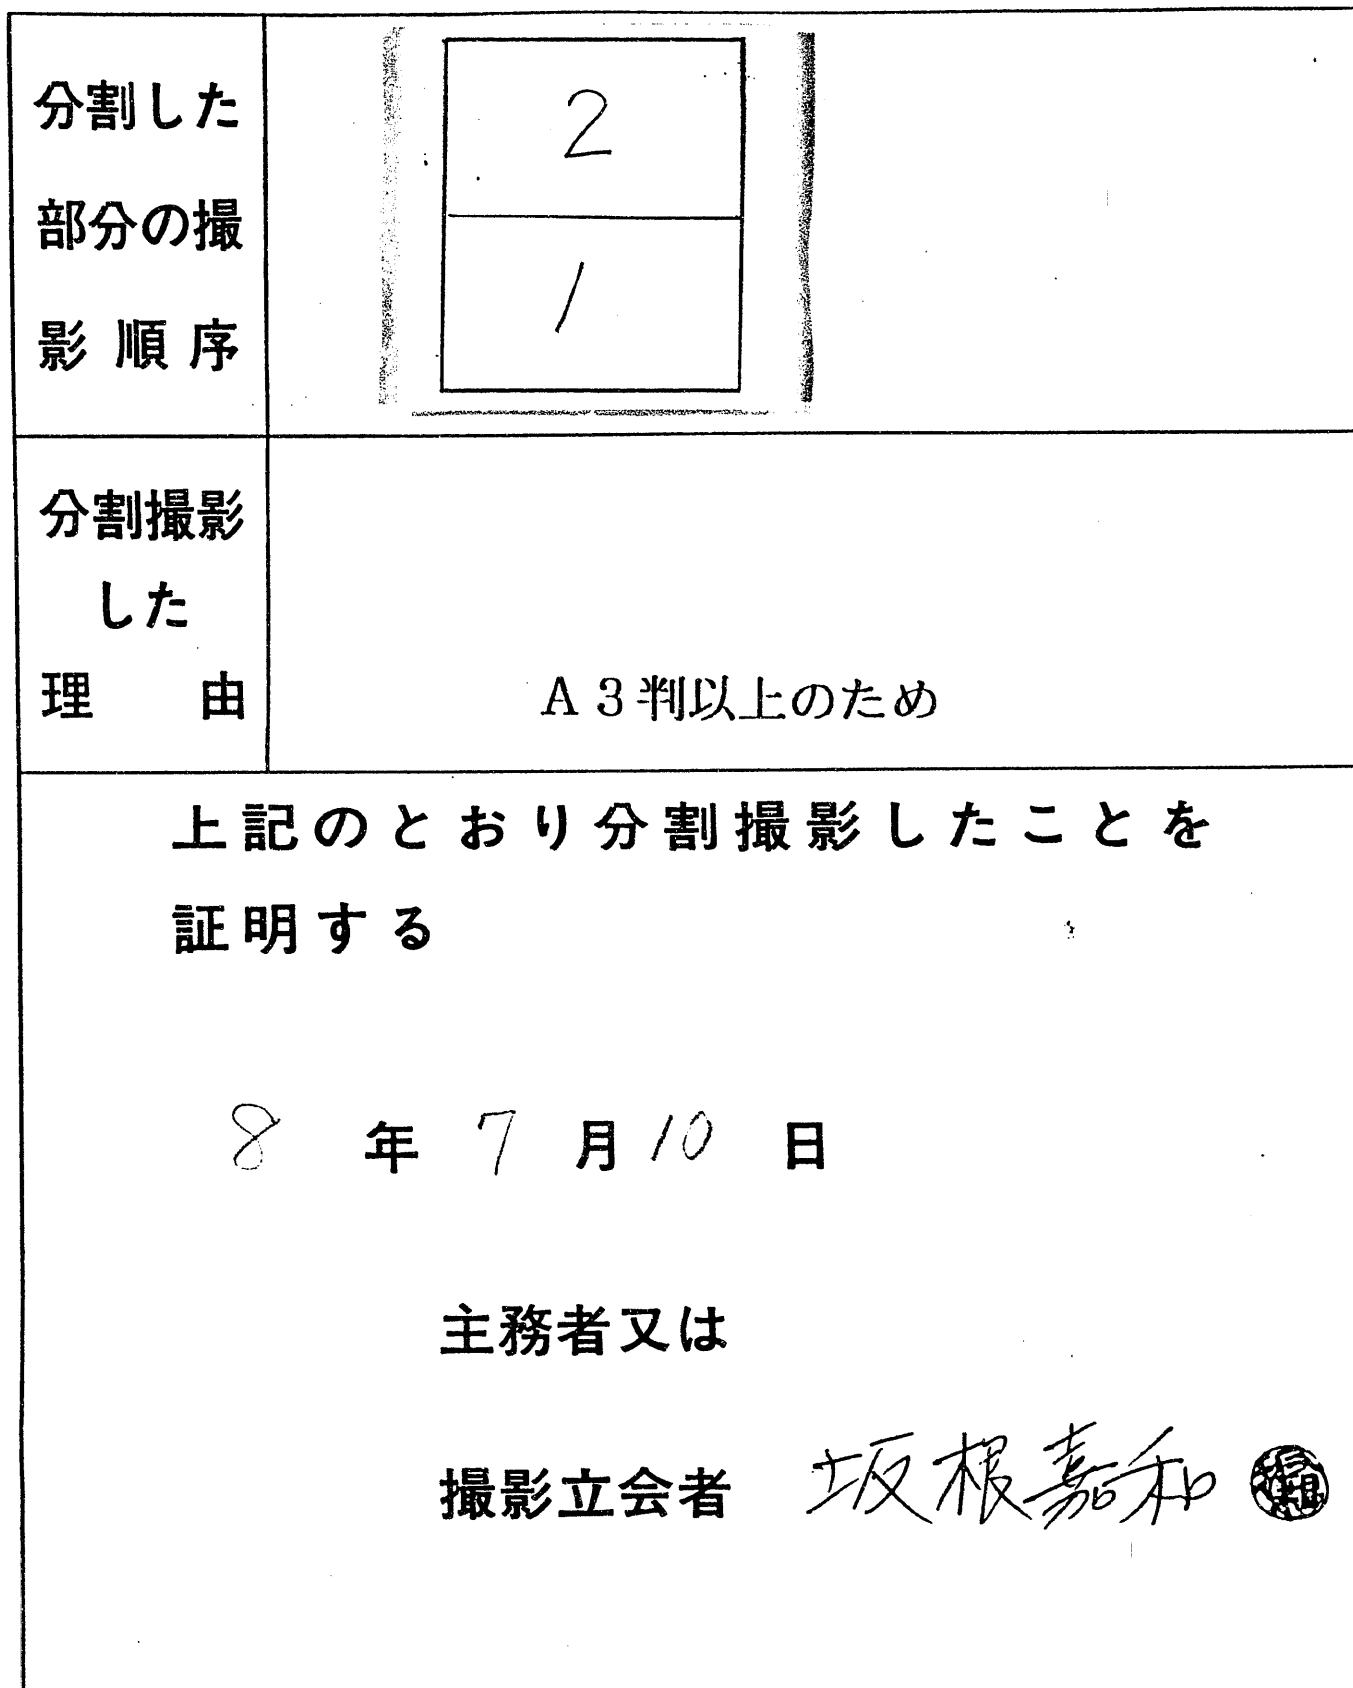 分割した
部分の撮
影順序
2
1
分割撮影
した
理由
A3判以上のため
上記のとおり分割撮影したことを
証明する
8年7月10日
主務者又は
撮影立会者 坂根嘉和